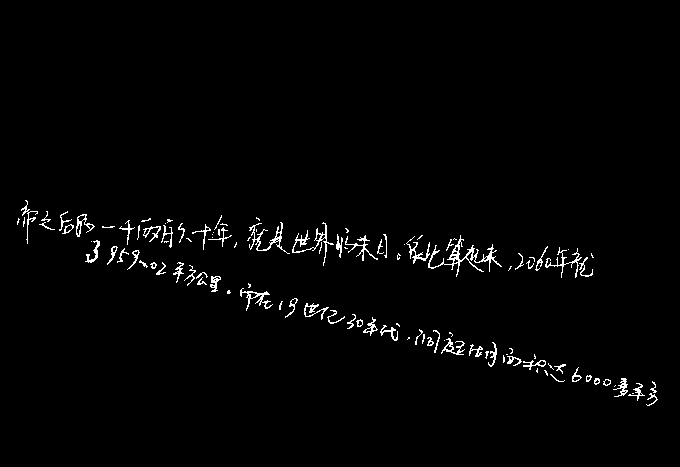 帝之后的一千两百六十年,就是世界的末日。依此算起来,2060年就
3959.02平方公里。而在19世纪30年代,洞庭湖面积达6000多平方